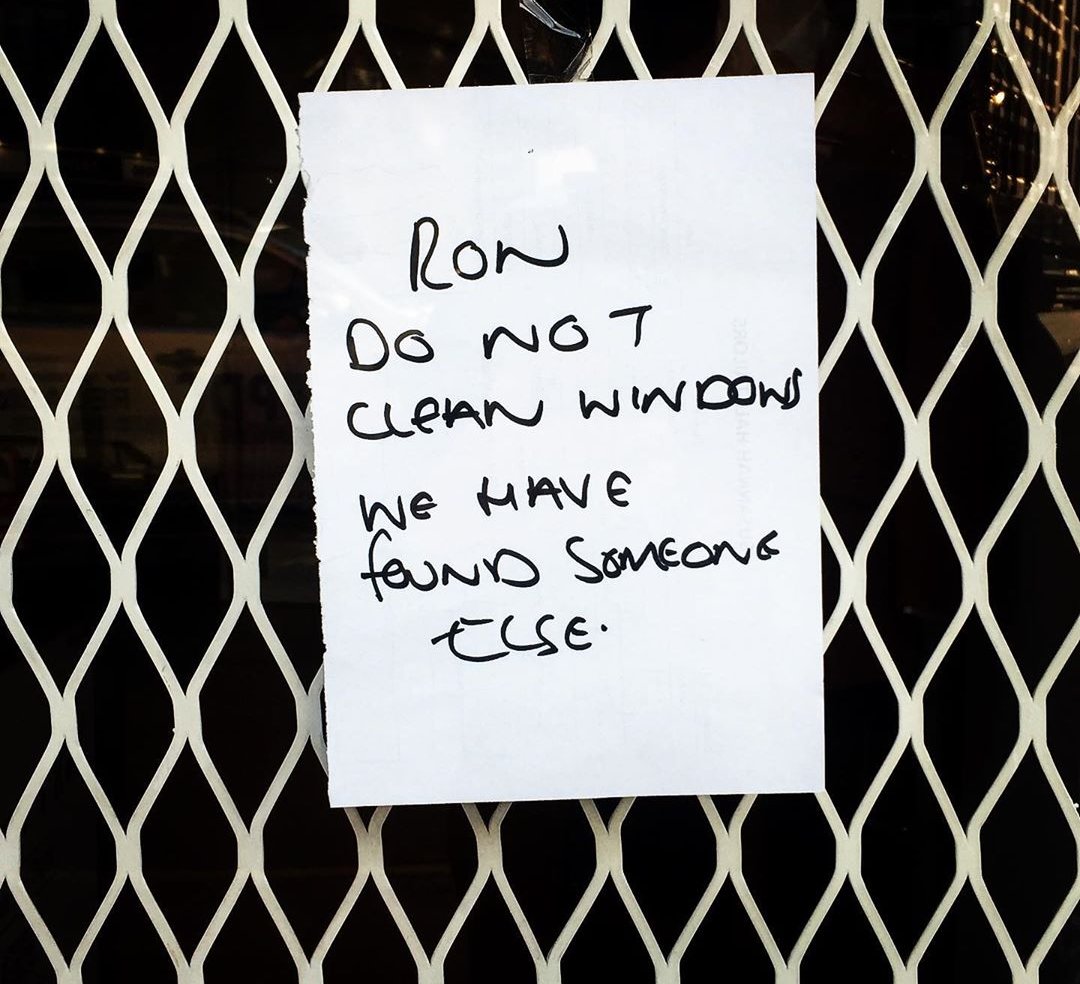 RON
DO NOT
CLEAN WINDOWS
WE HAVE
FOUND SOMEONE
ELSE.